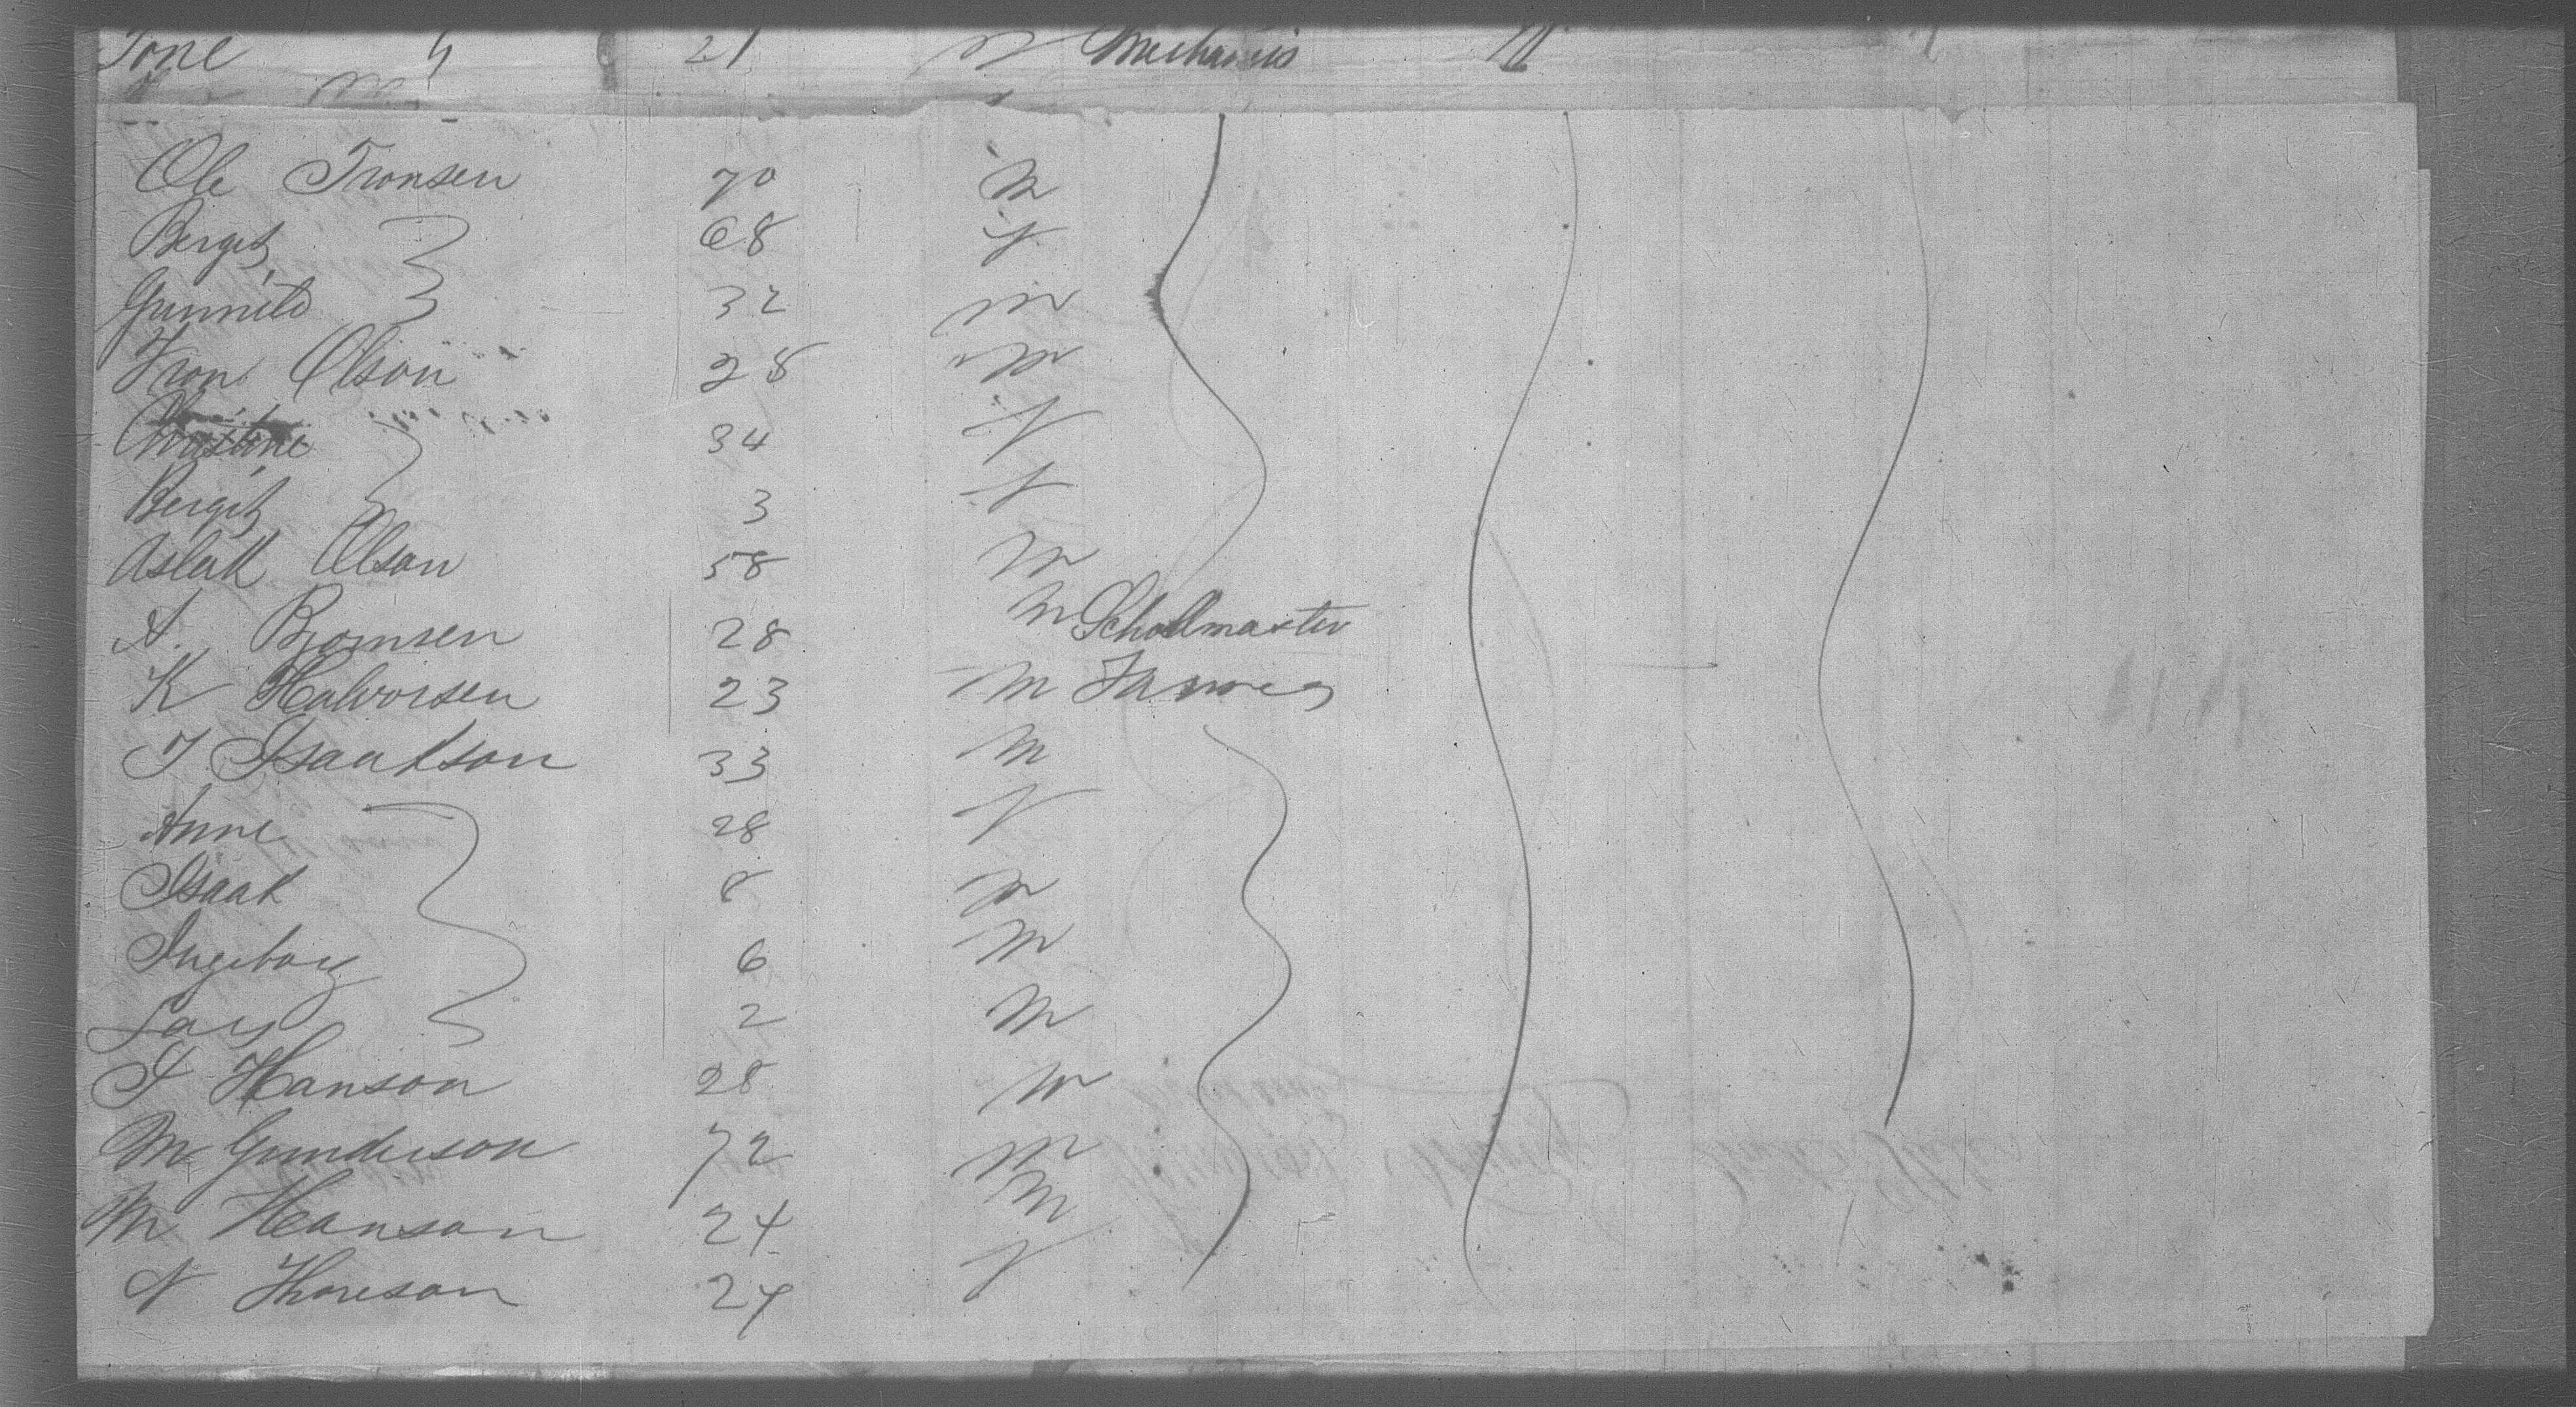 Tone " 21 m Mechanis
Ole Tronsen 70 m
Bergit 68 f
Gunnild 32 m
Tron Olson 28 " m
Christine 34 f
Bergit 3 f
Aslak Olson 58 m
A. Bjornsen 28 m Schollmaster
K Halvorsen 23 m Farmer
T Isaakson 33 m
Anne 28 f
Isaak 8 m
Ingeborg 6 m
Lars 2 m
T Hanson 28 m
M Gunderson 72 m
M Hanson 24 m
N Thoreson 24 f